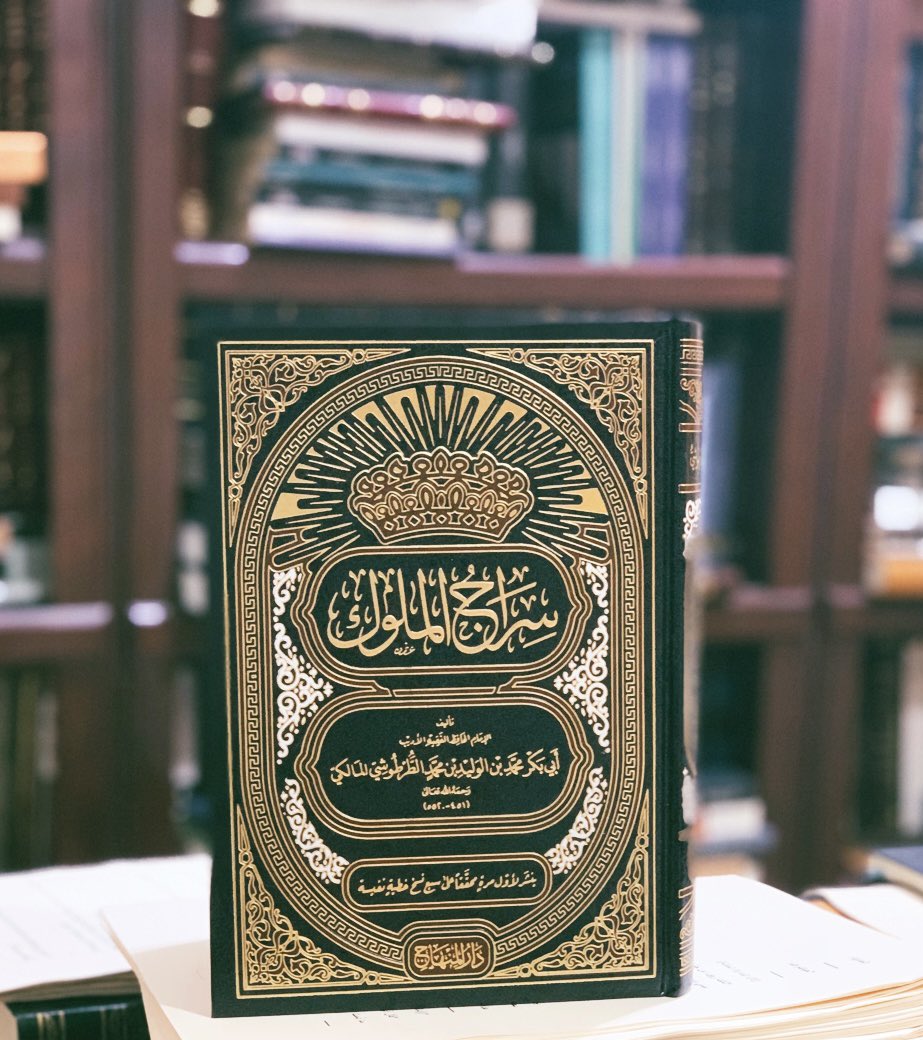 سِرَاجُ المُلُوكِ
تأليف
الإمام الحافظ الفقيه الأديب
أَبي بَكْر محمَّد بن الوليد بن محمَّد الطُّرْطُوشيّ المالكيّ
رحمه الله تعالى
(٤٥١-٥٢٠هـ)
ينشر لأول مرة محققًا على سبع نسخ خطية نفيسة
دار المنهاج